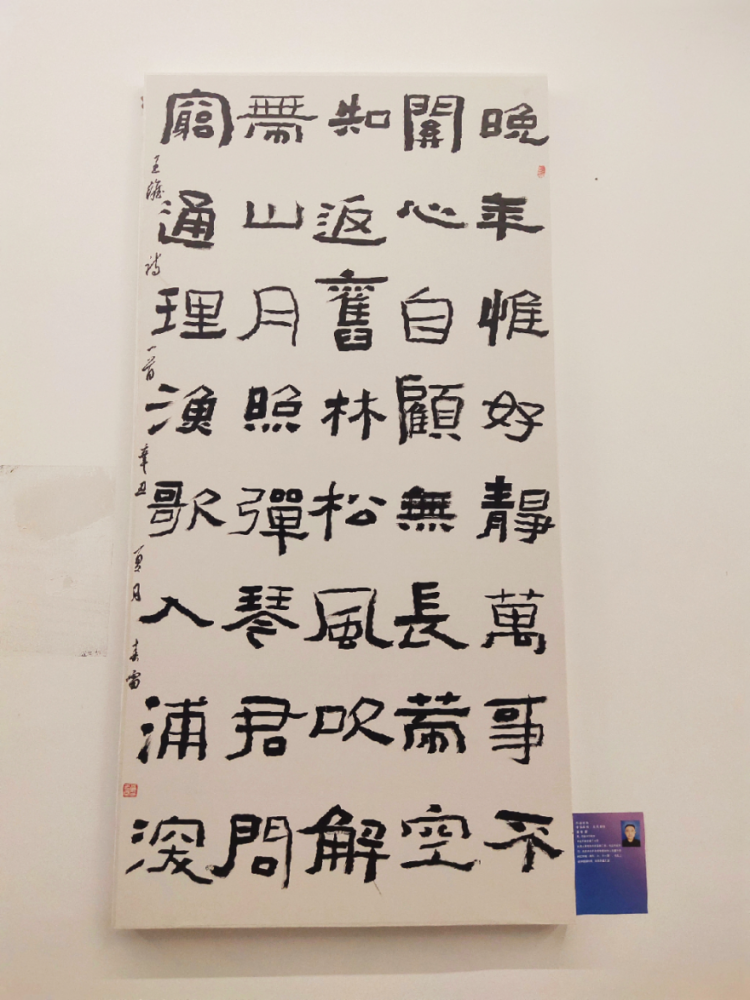 晚年惟好靜萬事不
關心自顧無長策空
知返舊林松風吹解
帶山月照彈琴君問
窮通理漁歌入浦深
王維詩一首辛丑夏月春雷